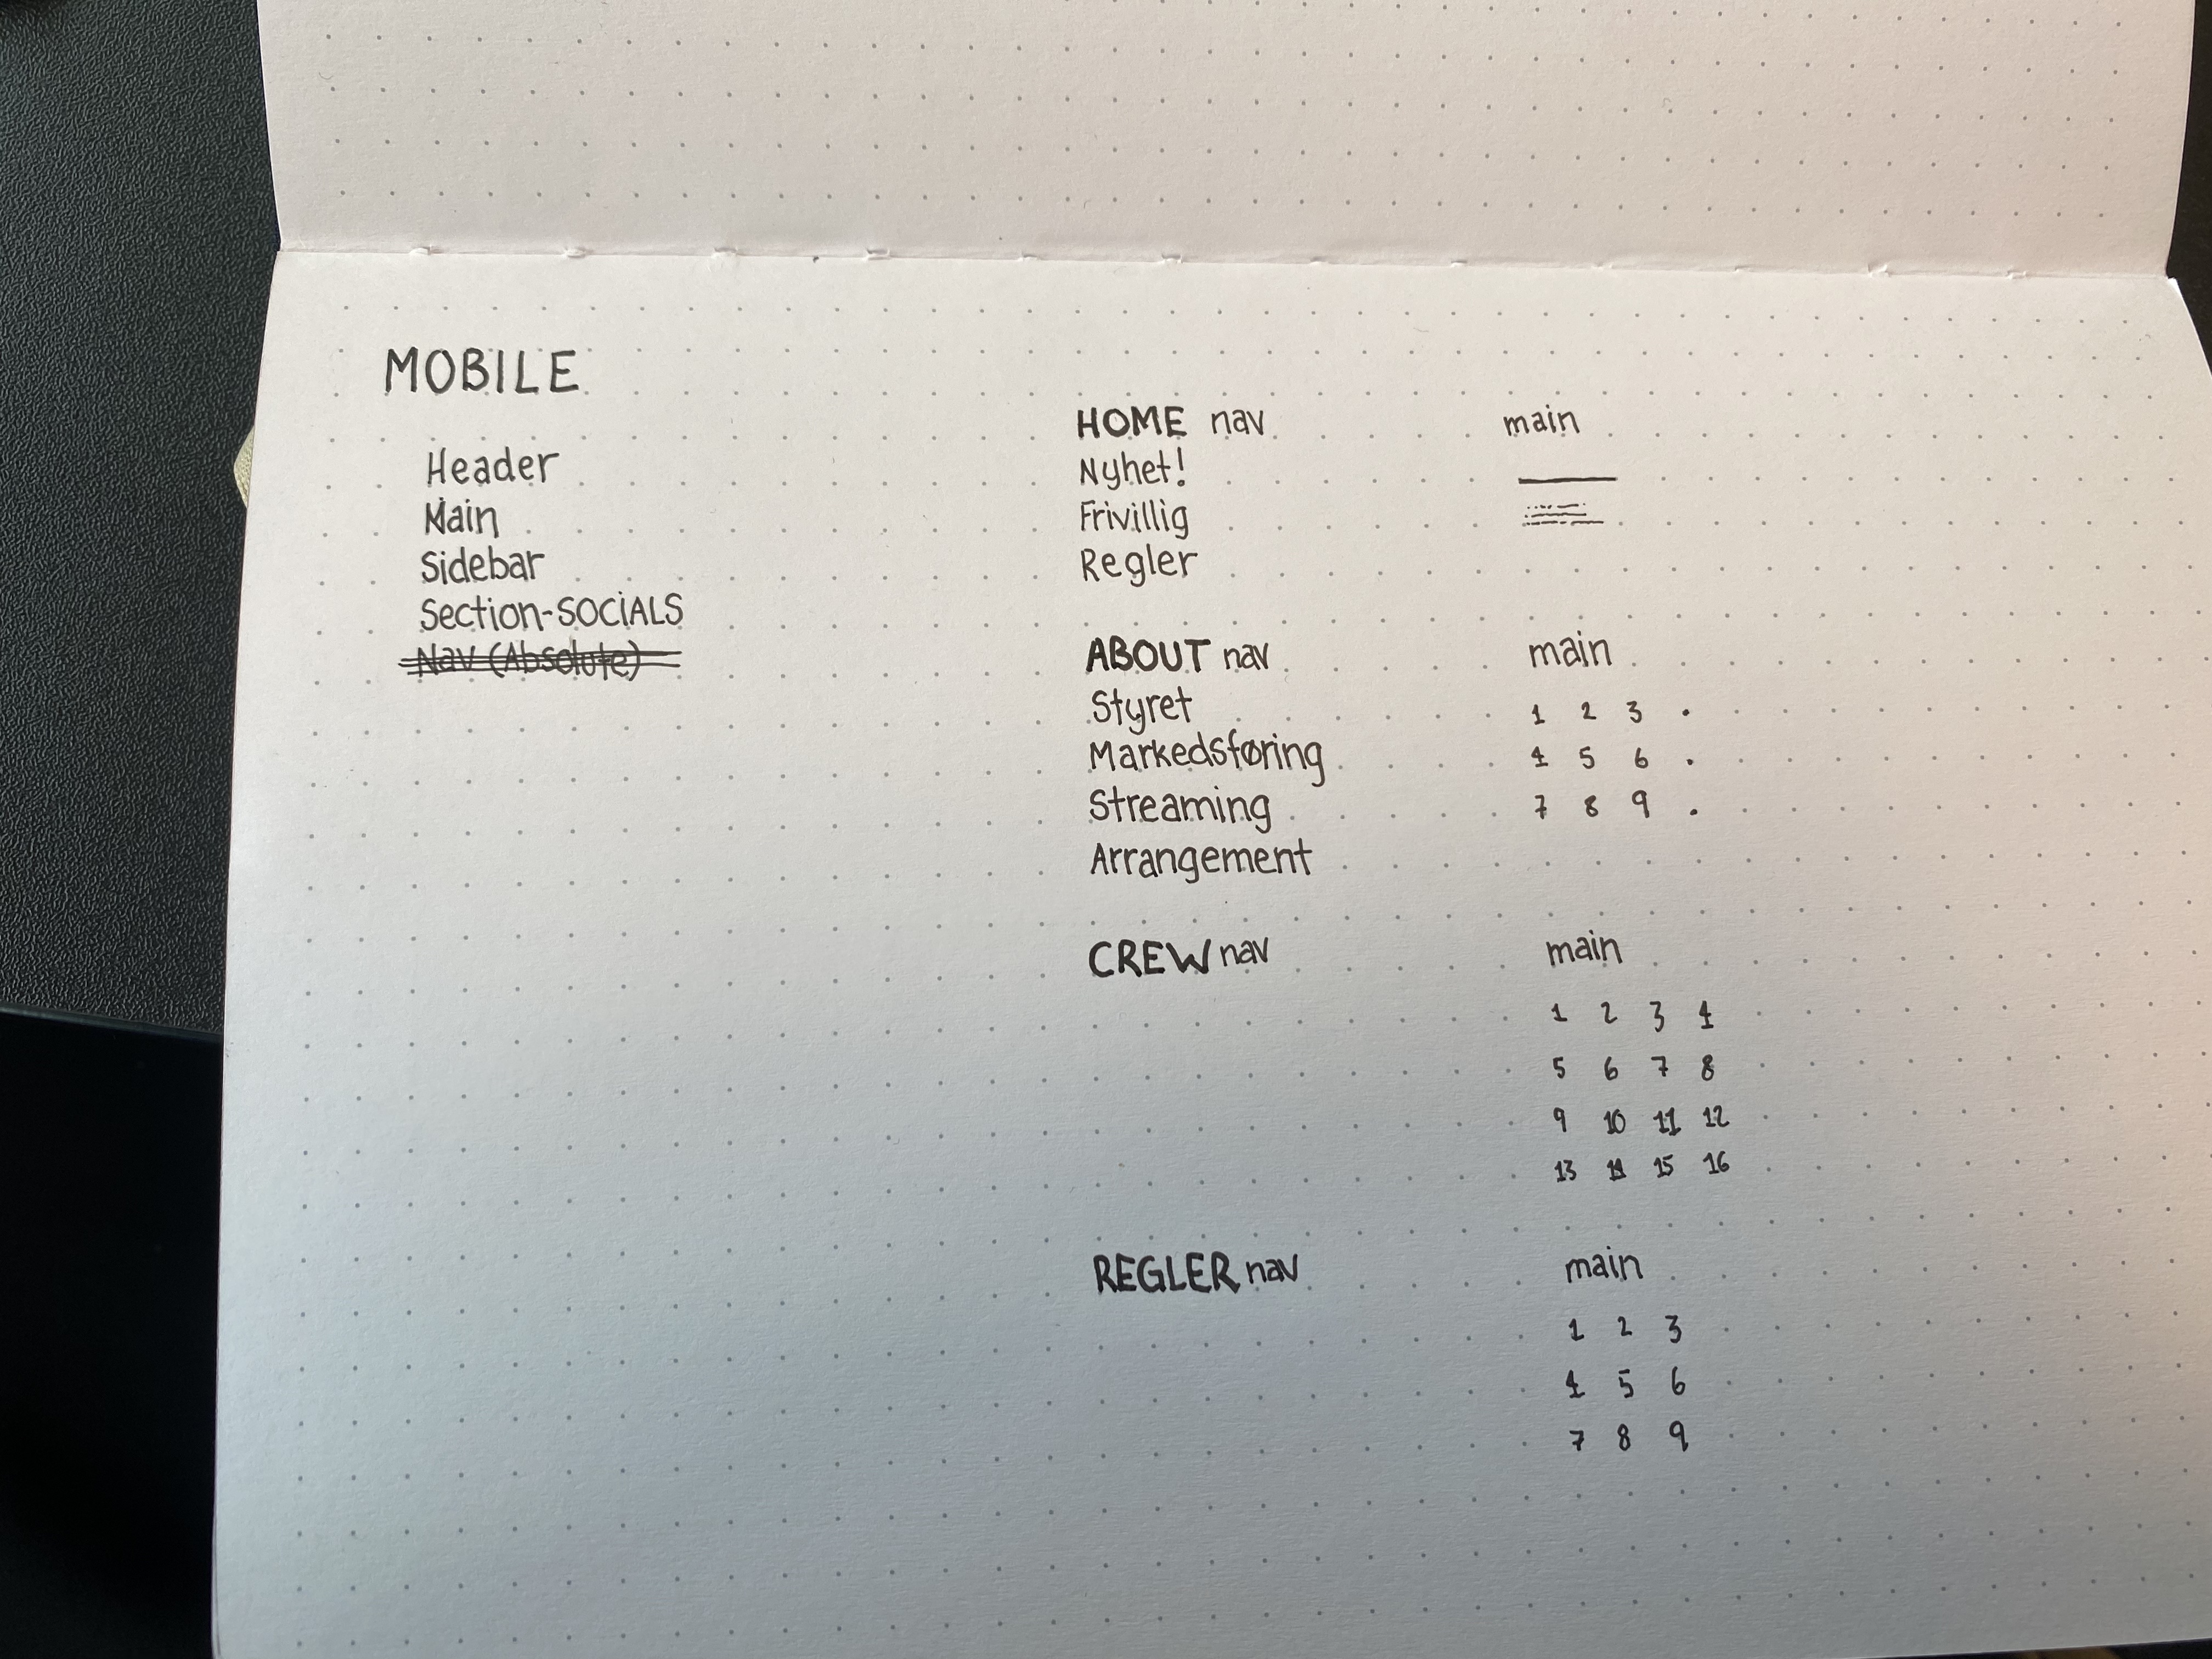 MOBILE
Header
Main
Sidebar
Section-SOCiALS
Nav (Absolute)
HOME nav main
Nyhet!
Frivillig
Regler
ABOUT nav main
Styret 1 2 3 .
Markedsføring 4 5 6 .
Streaming 7 8 9 .
Arrangement
CREW nav main
1 2 3 4
5 6 7 8
9 10 11 12
13 14 15 16
REGLER nav main
1 2 3
4 5 6
7 8 9